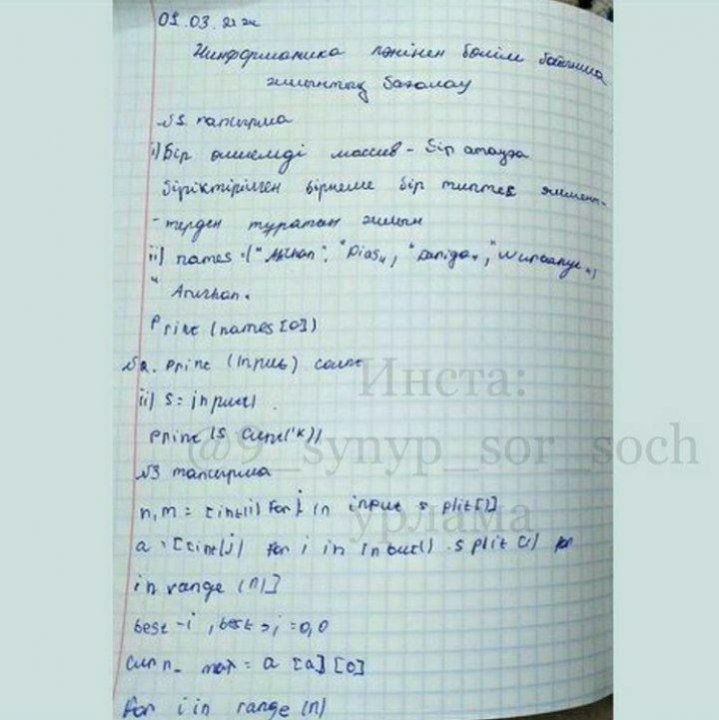 01.03.22
Информатика пәнінен бөлім бойынша
жиынтық бағалау
№1. тапсырма
i) Бір өлшемді массив - бір атауға
біріктірілген бірнеше бір типтес элемент-
-терден тұратын жиын
ii) names = ( " ": "Dias", "Daniya",
"
Print (names [0])
№2. Print (Input) count
ii) s = input()
print (s count('k'))
Инста:
@9_synyp_sor_soch
урлама
№3 тапсырма
n, m = [int(i) for i in input split[]]
a = [[int(j) for i in input() .split ()] for
in range (n)]
best - i , best - j = 0,0
curr_ max = a [a] [0]
for i in range (n)